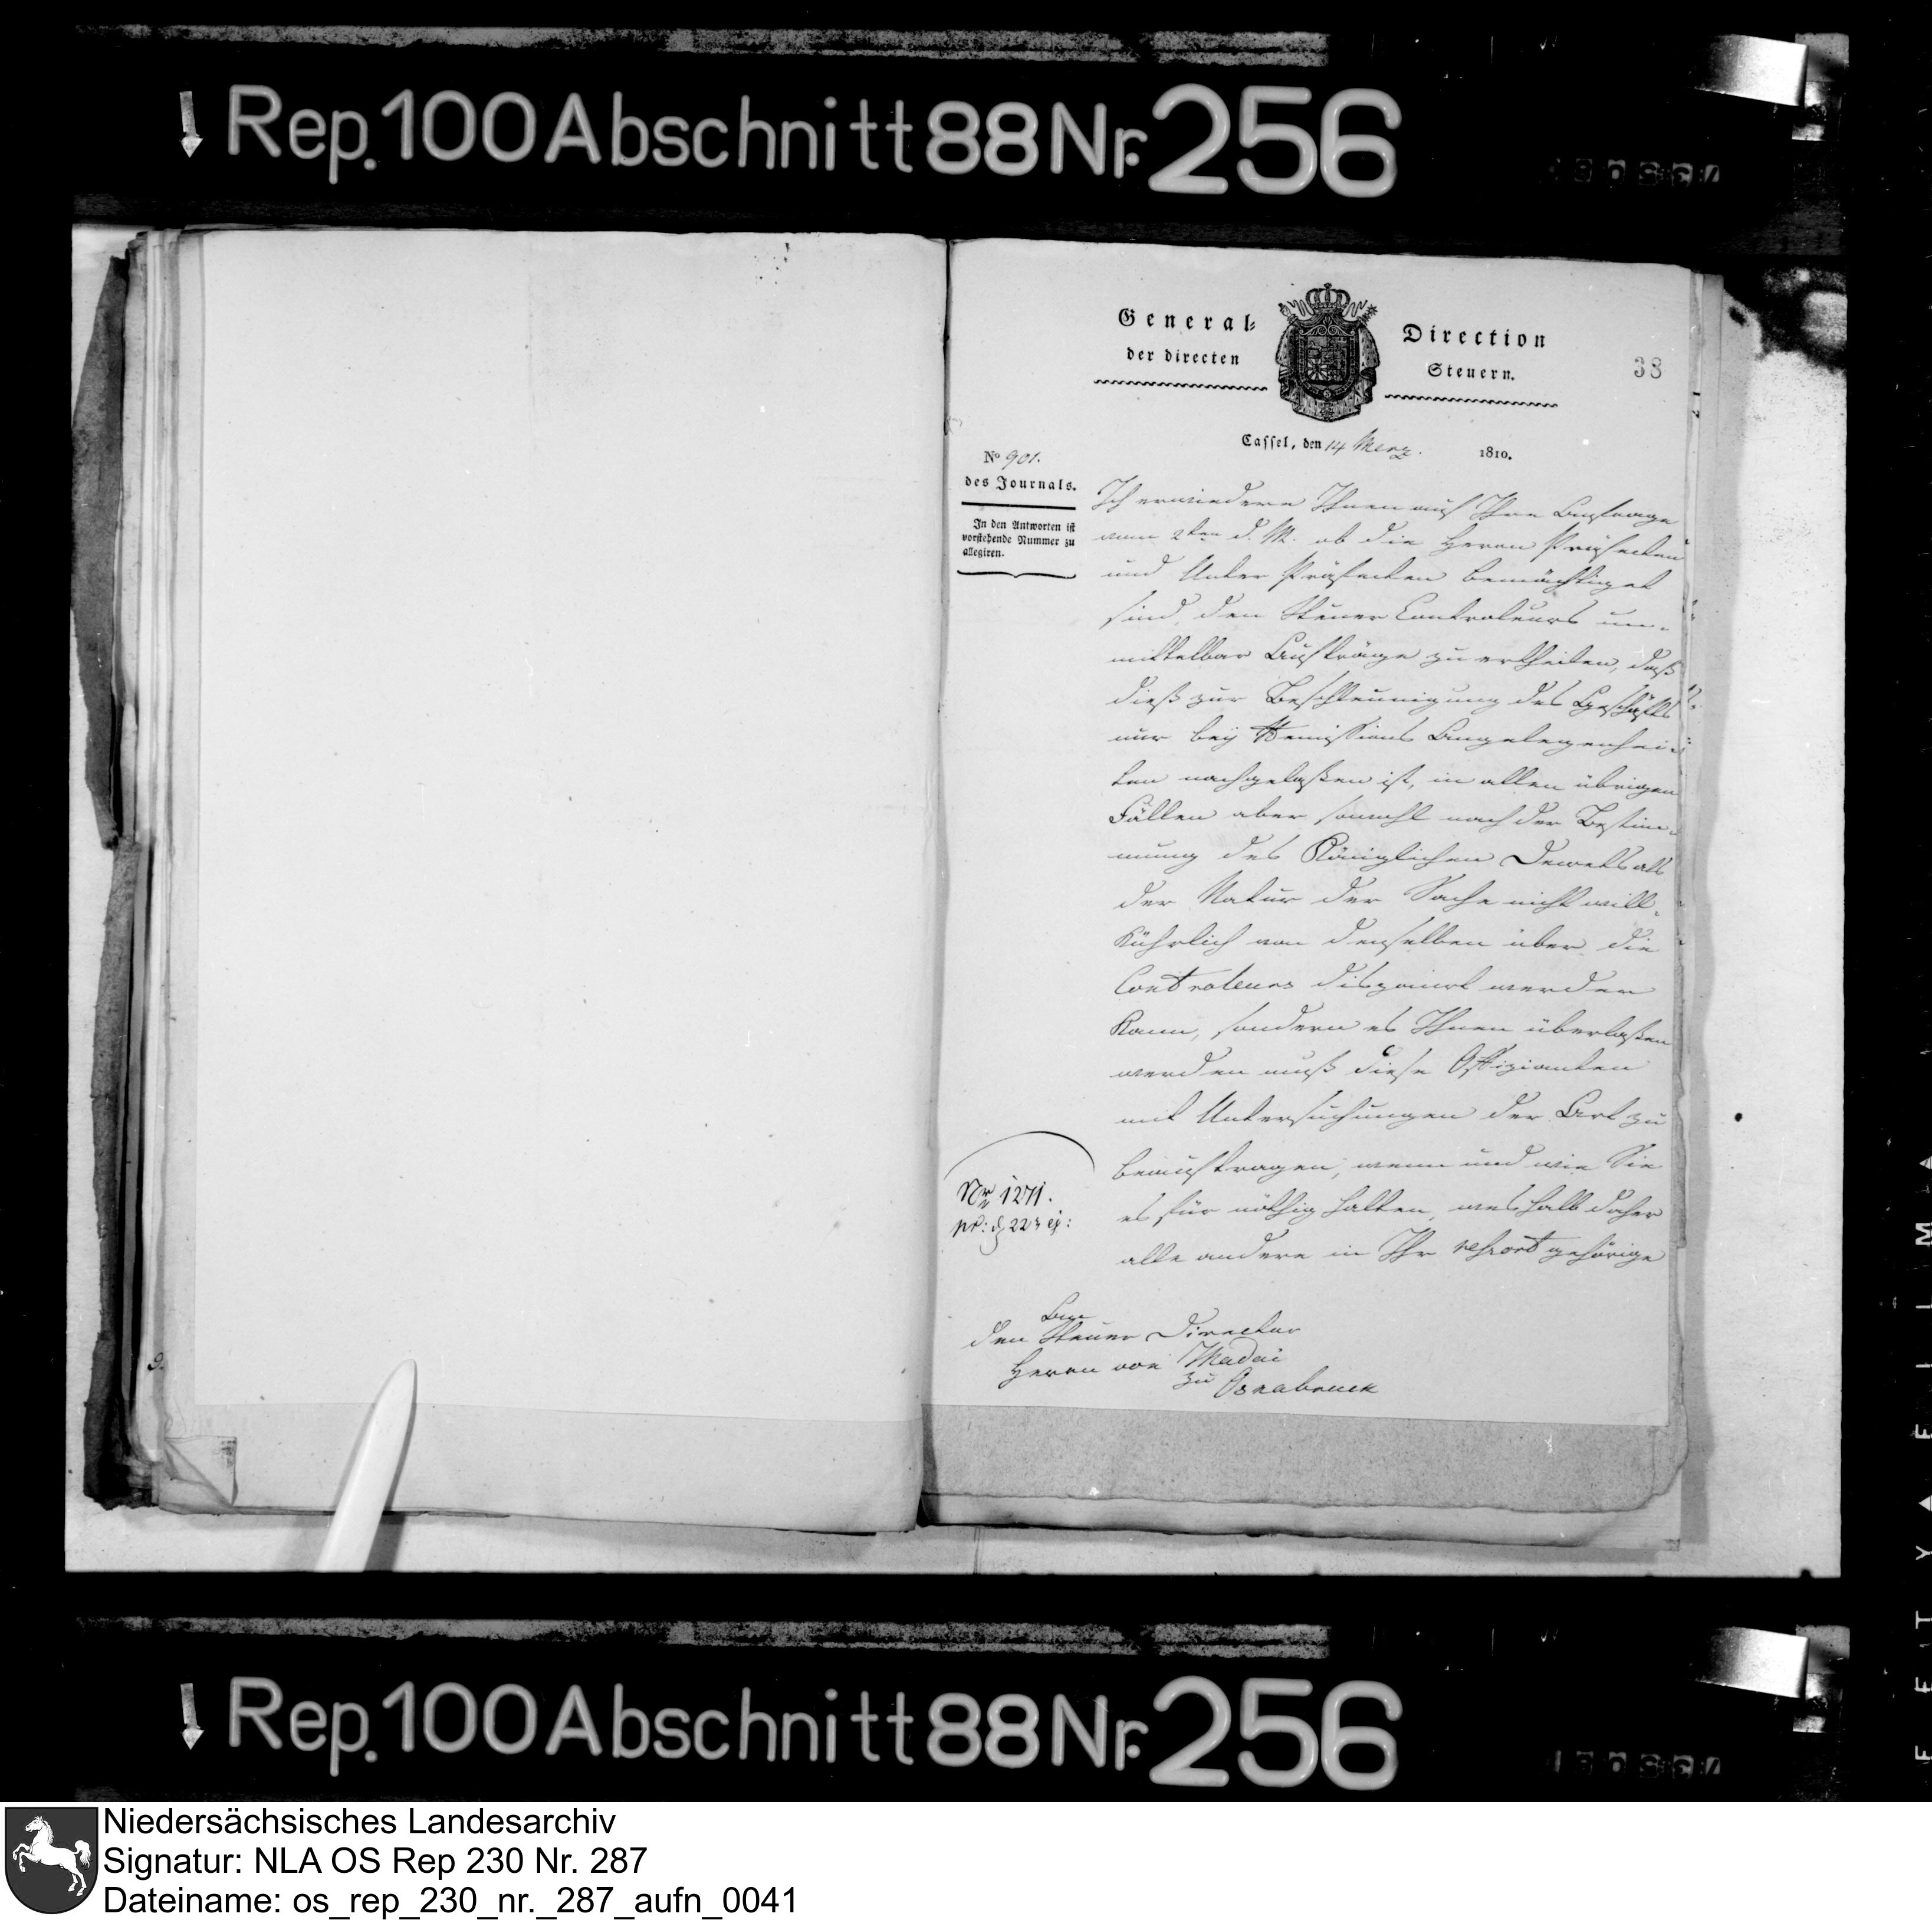 Rep. 100 Abschnitt 88 Nr. 256
General-Direction
der directen Steuern.
38
Cassel, den 14 Merz. 1810.
No 901.
des Journals.
In den Antworten ist
vorstehende Nummer zu
allegiren.
Ich erwiedere Ihnen auf Ihre Anfrage
vom 2ten d. M. ob die Herrn Präfecten
und Unter Präfecten bemächtiget
sind, den Steuer Controleurs un-
mittelbar Aufträge zu ertheilen, daß
dieß zur Beschleunigung des Geschäfts
nur bey Remissions Angelegenhei-
ten nachgelaßen ist, in allen übrigen
Fällen aber sowohl nach der Bestim-
mung des Königlichen Decrets als
der Natur der Sache nicht will-
kührlich von denselben über die
Controleurs disponirt werden
kann, sondern es Ihnen überlaßen
werden muß diese Offizianten
mit Untersuchungen der Art zu
beauftragen, wenn und wie Sie
es für nöthig halten, weshalb daher
alle andere in Ihr reßort gehörige
Nr 1271.
pr: d 22 ej:
An
den Steuer Director
Herrn von Madai
zu Osnabrueck
9.
Rep. 100 Abschnitt 88 Nr. 256
Niedersächsisches Landesarchiv
Signatur: NLA OS Rep 230 Nr. 287
Dateiname: os_rep_230_nr._287_aufn_0041